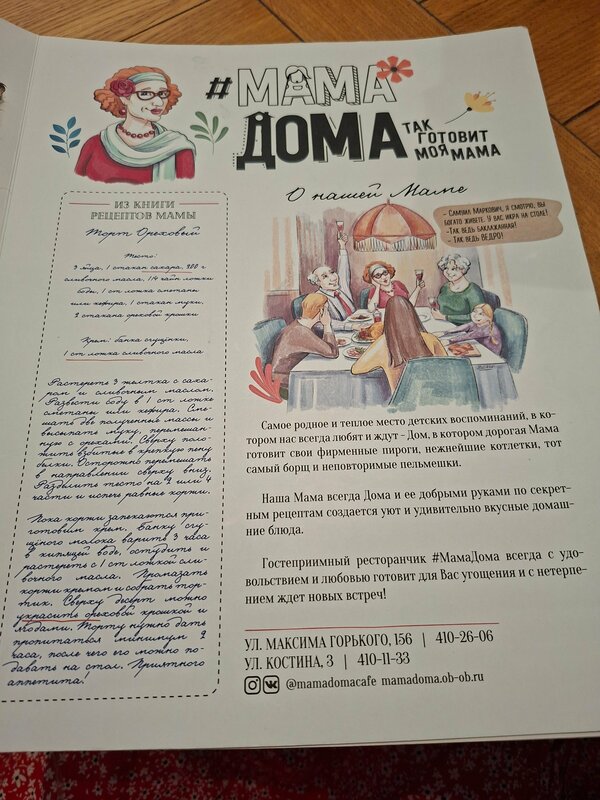 #МАМА
ДОМА
ТАК
ГОТОВИТ
МОЯ МАМА
ИЗ КНИГИ
РЕЦЕПТОВ МАМЫ
Торт Ореховый
Тесто:
3 яйца, 1 стакан сахара, 200 г
сливочного масла, 1/4 чайн ложки
соды, 1 ст ложка сметаны
или кефира, 1 стакан муки,
2 стакана ореховой крошки
Крем: банка сгущёнки,
1 ст ложка сливочного масла
Растереть 3 желтка с саха-
ром и сливочным маслом.
Развести соду в 1 ст ложке
сметаны или кефира. Сме-
шать две полученные массы и
высыпать муку, перемешан-
ную с орехами. Сверху поло-
жить взбитые в крепкую пену
белки. Осторожно перемешать
в направлении сверху вниз.
Разделить тесто на 2 или 4
части и испечь равные коржи.
Пока коржи запекаются при-
готовим крем. Банку сгу-
щёного молока варить 3 часа
в кипящей воде, остудить и
растереть с 1 ст ложкой сли-
вочного масла. Промазать
коржи кремом и собрать тор-
тик. Сверху десерт можно
украсить ореховой крошкой и
ягодами. Торту нужно дать
пропитаться минимум 2
часа, после чего его можно по-
давать на стол. Приятного
аппетита!
О нашей Маме
- САМУИЛ МАРКОВИЧ, Я СМОТРЮ, ВЫ
БОГАТО ЖИВЕТЕ. У ВАС ИКРА НА СТОЛЕ!
-ТАК ВЕДЬ БАКЛАЖАННАЯ!
- ТАК ВЕДЬ ВЕДРО!
Самое родное и теплое место детских воспоминаний, в ко-
тором нас всегда любят и ждут - Дом, в котором дорогая Мама
готовит свои фирменные пироги, нежнейшие котлетки, тот
самый борщ и неповторимые пельмешки.
Наша Мама всегда Дома и ее добрыми руками по секрет-
ным рецептам создается уют и удивительно вкусные домаш-
ние блюда.
Гостеприимный ресторанчик #МамаДома всегда с удо-
вольствием и любовью готовит для Вас угощения и с нетерпе-
нием ждет новых встреч!
УЛ. МАКСИМА ГОРЬКОГО, 156 | 410-26-06
УЛ. КОСТИНА, 3 | 410-11-33
@mamadomacafe mamadoma.ob-ob.ru